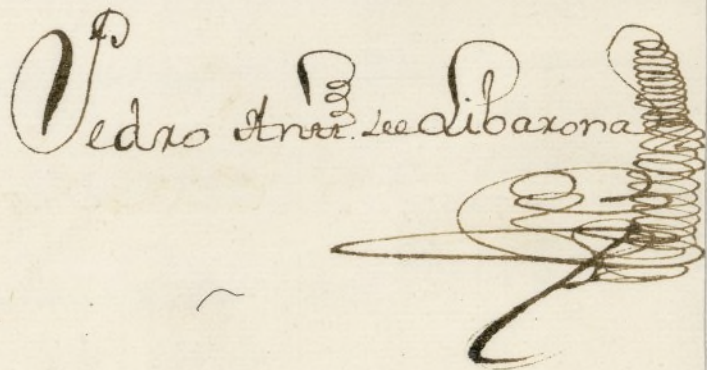 Pedro Antt. de Libarona